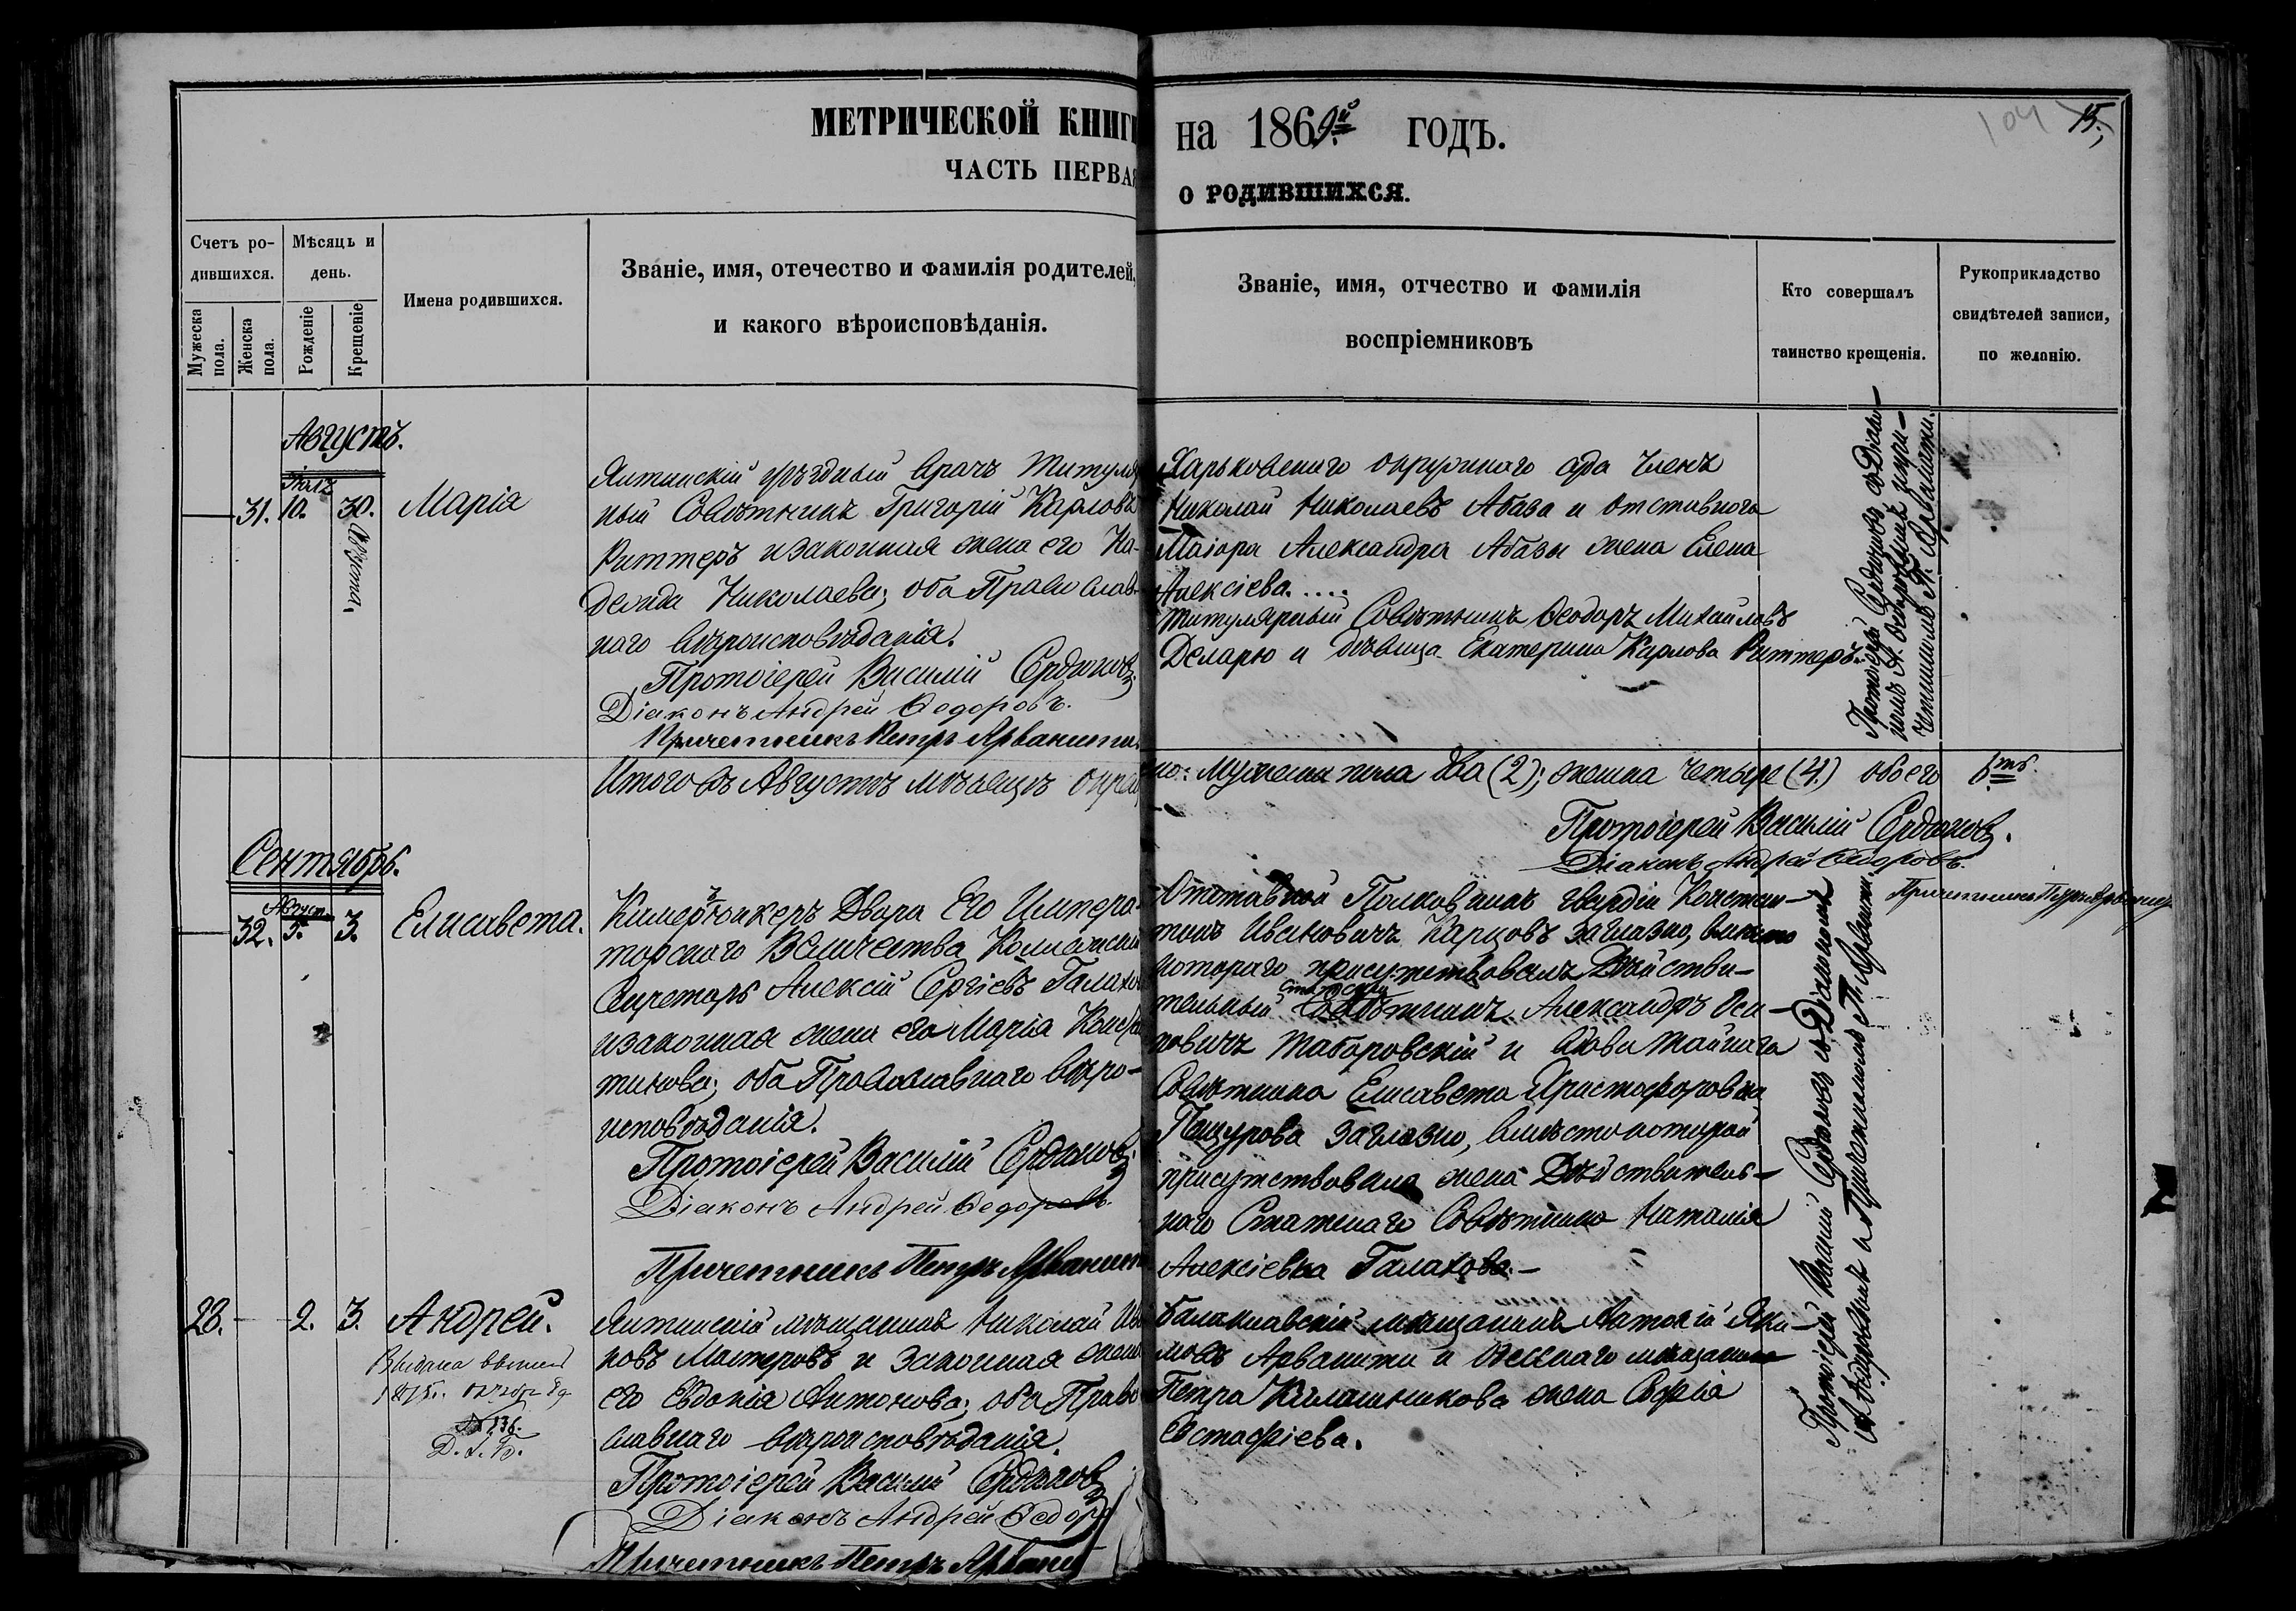 МЕТРИЧЕСКОЙ КНИГИ на 1869й ГОДЪ.
104 15.
ЧАСТЬ ПЕРВАЯ О РОДИВШИХСЯ.
Счетъ ро-
дившихся.
Мужеска пола.
Женска пола.
Мѣсяцъ и
день.
Рожденіе
Крещеніе
Имена родившихся.
Званіе, имя, отечество и фамилія родителей,
и какого вѣроисповѣданія.
Званіе, имя, отчество и фамилія
воспріемниковъ
Кто совершалъ
таинство крещенія.
Рукоприкладство
свидѣтелей записи,
по желанію.
Августъ.
31. 10. 30. Августа
Марія
Ялтинскій уѣздный врачъ Титуляр
ный Совѣтникъ Григорій Карловъ
Риттеръ и законная жена его На-
дежда Николаева; оба Православ-
наго вѣроисповѣданія.
Протоіерей Василій Сердюковъ
Діаконъ Андрей Ѳедоровъ.
Причетникъ Петръ Арванити.
Харьковскаго окружнаго суда Членъ
Николай Николаевъ Абаза и отставнаго
Маіора Александра Абазы жена Елена
Алексіева....
Титулярный Совѣтникъ Ѳеодоръ Михайловъ
Деларю и дѣвица Екатерина Карлова Риттеръ.
Протоіерей Сердюковъ съ Діако-
номъ А. Ѳедоровымъ и при-
четникомъ П. Арванити.
Итого въ Августѣ мѣсяцѣ окрещено: мужеска пола два (2); женска четыре (4.) обоего 6ть.
Протоіерей Василій Сердюковъ.
Діаконъ Андрей Ѳедоровъ.
Причетникъ Петръ Арванити
Сентябрь.
32. Август. 5. 3. Елисавета.
Камеръ-юнкеръ Двора Его Импера-
торскаго Величества Коллежскій
Секретарь Алексій Сергіевъ Галахо
и законная жена его Марія Конста
тинова; оба Православнаго вѣро-
исповѣданія.
Протоіерей Василій Сердюковъ.
Діаконъ Андрей Ѳедоровъ.
Причетникъ Петръ Арванити
Отставной Полковникъ гвардіи Констан-
тинъ Ивановичъ Карцовъ заглазно, вмѣсто
котораго присутствовалъ Дѣйстви-
тельный Статскій Совѣтникъ Александръ Оси-
повичъ Таборовскій и вдова тайнаго
Совѣтника Елисавета Христофоровна
Пещурова заглазно, вмѣсто которой
присутствовала жена Дѣйствитель-
наго Статскаго Совѣтника Наталія
Алексіевна Галахова.
Протоіерей Василій Сердюковъ съ Діакономъ
А. Ѳедоровымъ и Причетникомъ П. Арванити.
28. - 2. 3. Андрей.
№ 136.
Ялтинскій мѣщанинъ Николай Ива
новъ Мастеровъ и законная жена
его Евдокія Антонова; оба Право
славнаго вѣроисповѣданія.
Протоіерей Василій Сердюковъ
Діаконъ Андрей Ѳедоро
Причетникъ Петръ Арванит
Балаклавскій мѣщанинъ Антоній Яки-
мовъ Арванити и Одесскаго мѣщанина
Петра Калашникова жена Софія
Евстафіева.